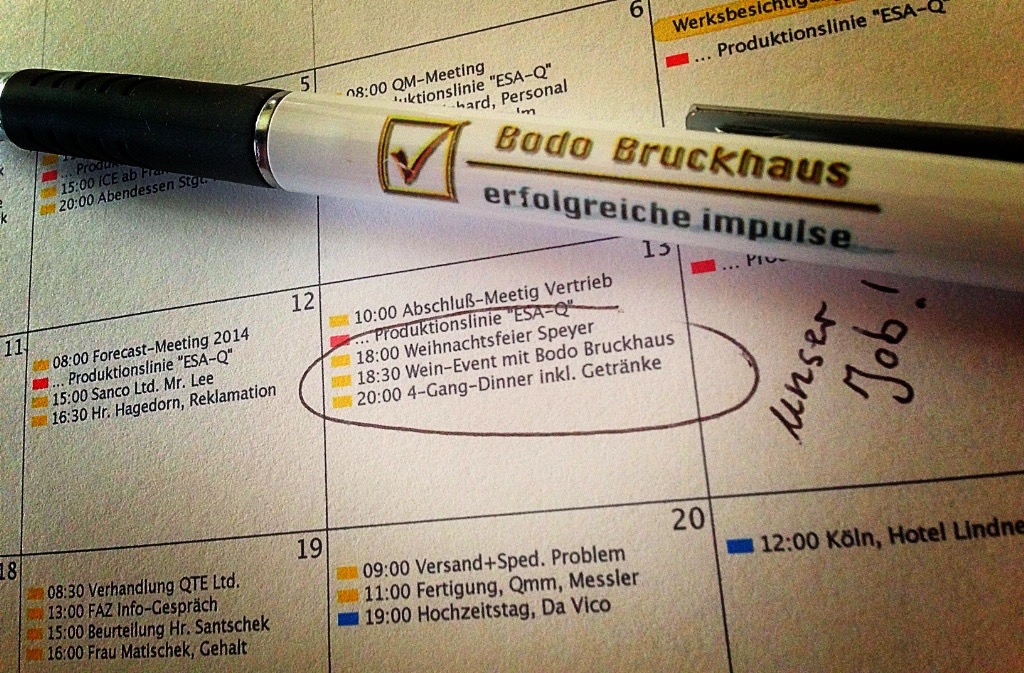 6
Werksbesichtigung
... Produktionslinie "ESA-Q"
5
08:00 QM-Meeting
"ESA-Q"
Personal
Bodo Bruckhaus
erfolgreiche impulse
15:00 ICE ab
20:00 Abendessen Stgt.
13
10:00 Abschluß-Meetig Vertrieb
... Produktionslinie "ESA-Q"
18:00 Weihnachtsfeier Speyer
18:30 Wein-Event mit Bodo Bruckhaus
20:00 4-Gang-Dinner inkl. Getränke
unser
Job!
12
11
08:00 Forecast-Meeting 2014
... Produktionslinie "ESA-Q"
15:00 Sanco Ltd. Mr. Lee
16:30 Hr. Hagedorn, Reklamation
20
12:00 Köln, Hotel
19
09:00 Versand+Sped. Problem
11:00 Fertigung, Qmm, Messler
19:00 Hochzeitstag, Da Vico
18
08:30 Verhandlung QTE Ltd.
13:00 FAZ Info-Gespräch
15:00 Beurteilung Hr. Santschek
16:00 Frau Matischek, Gehalt